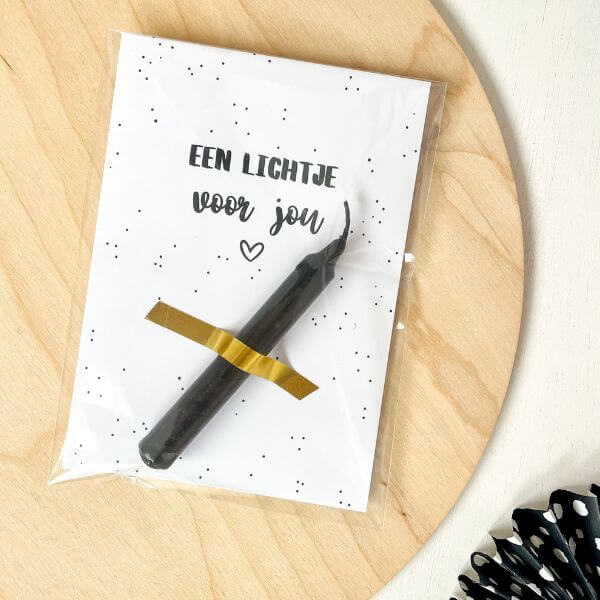 EEN LICHTJE
voor jou